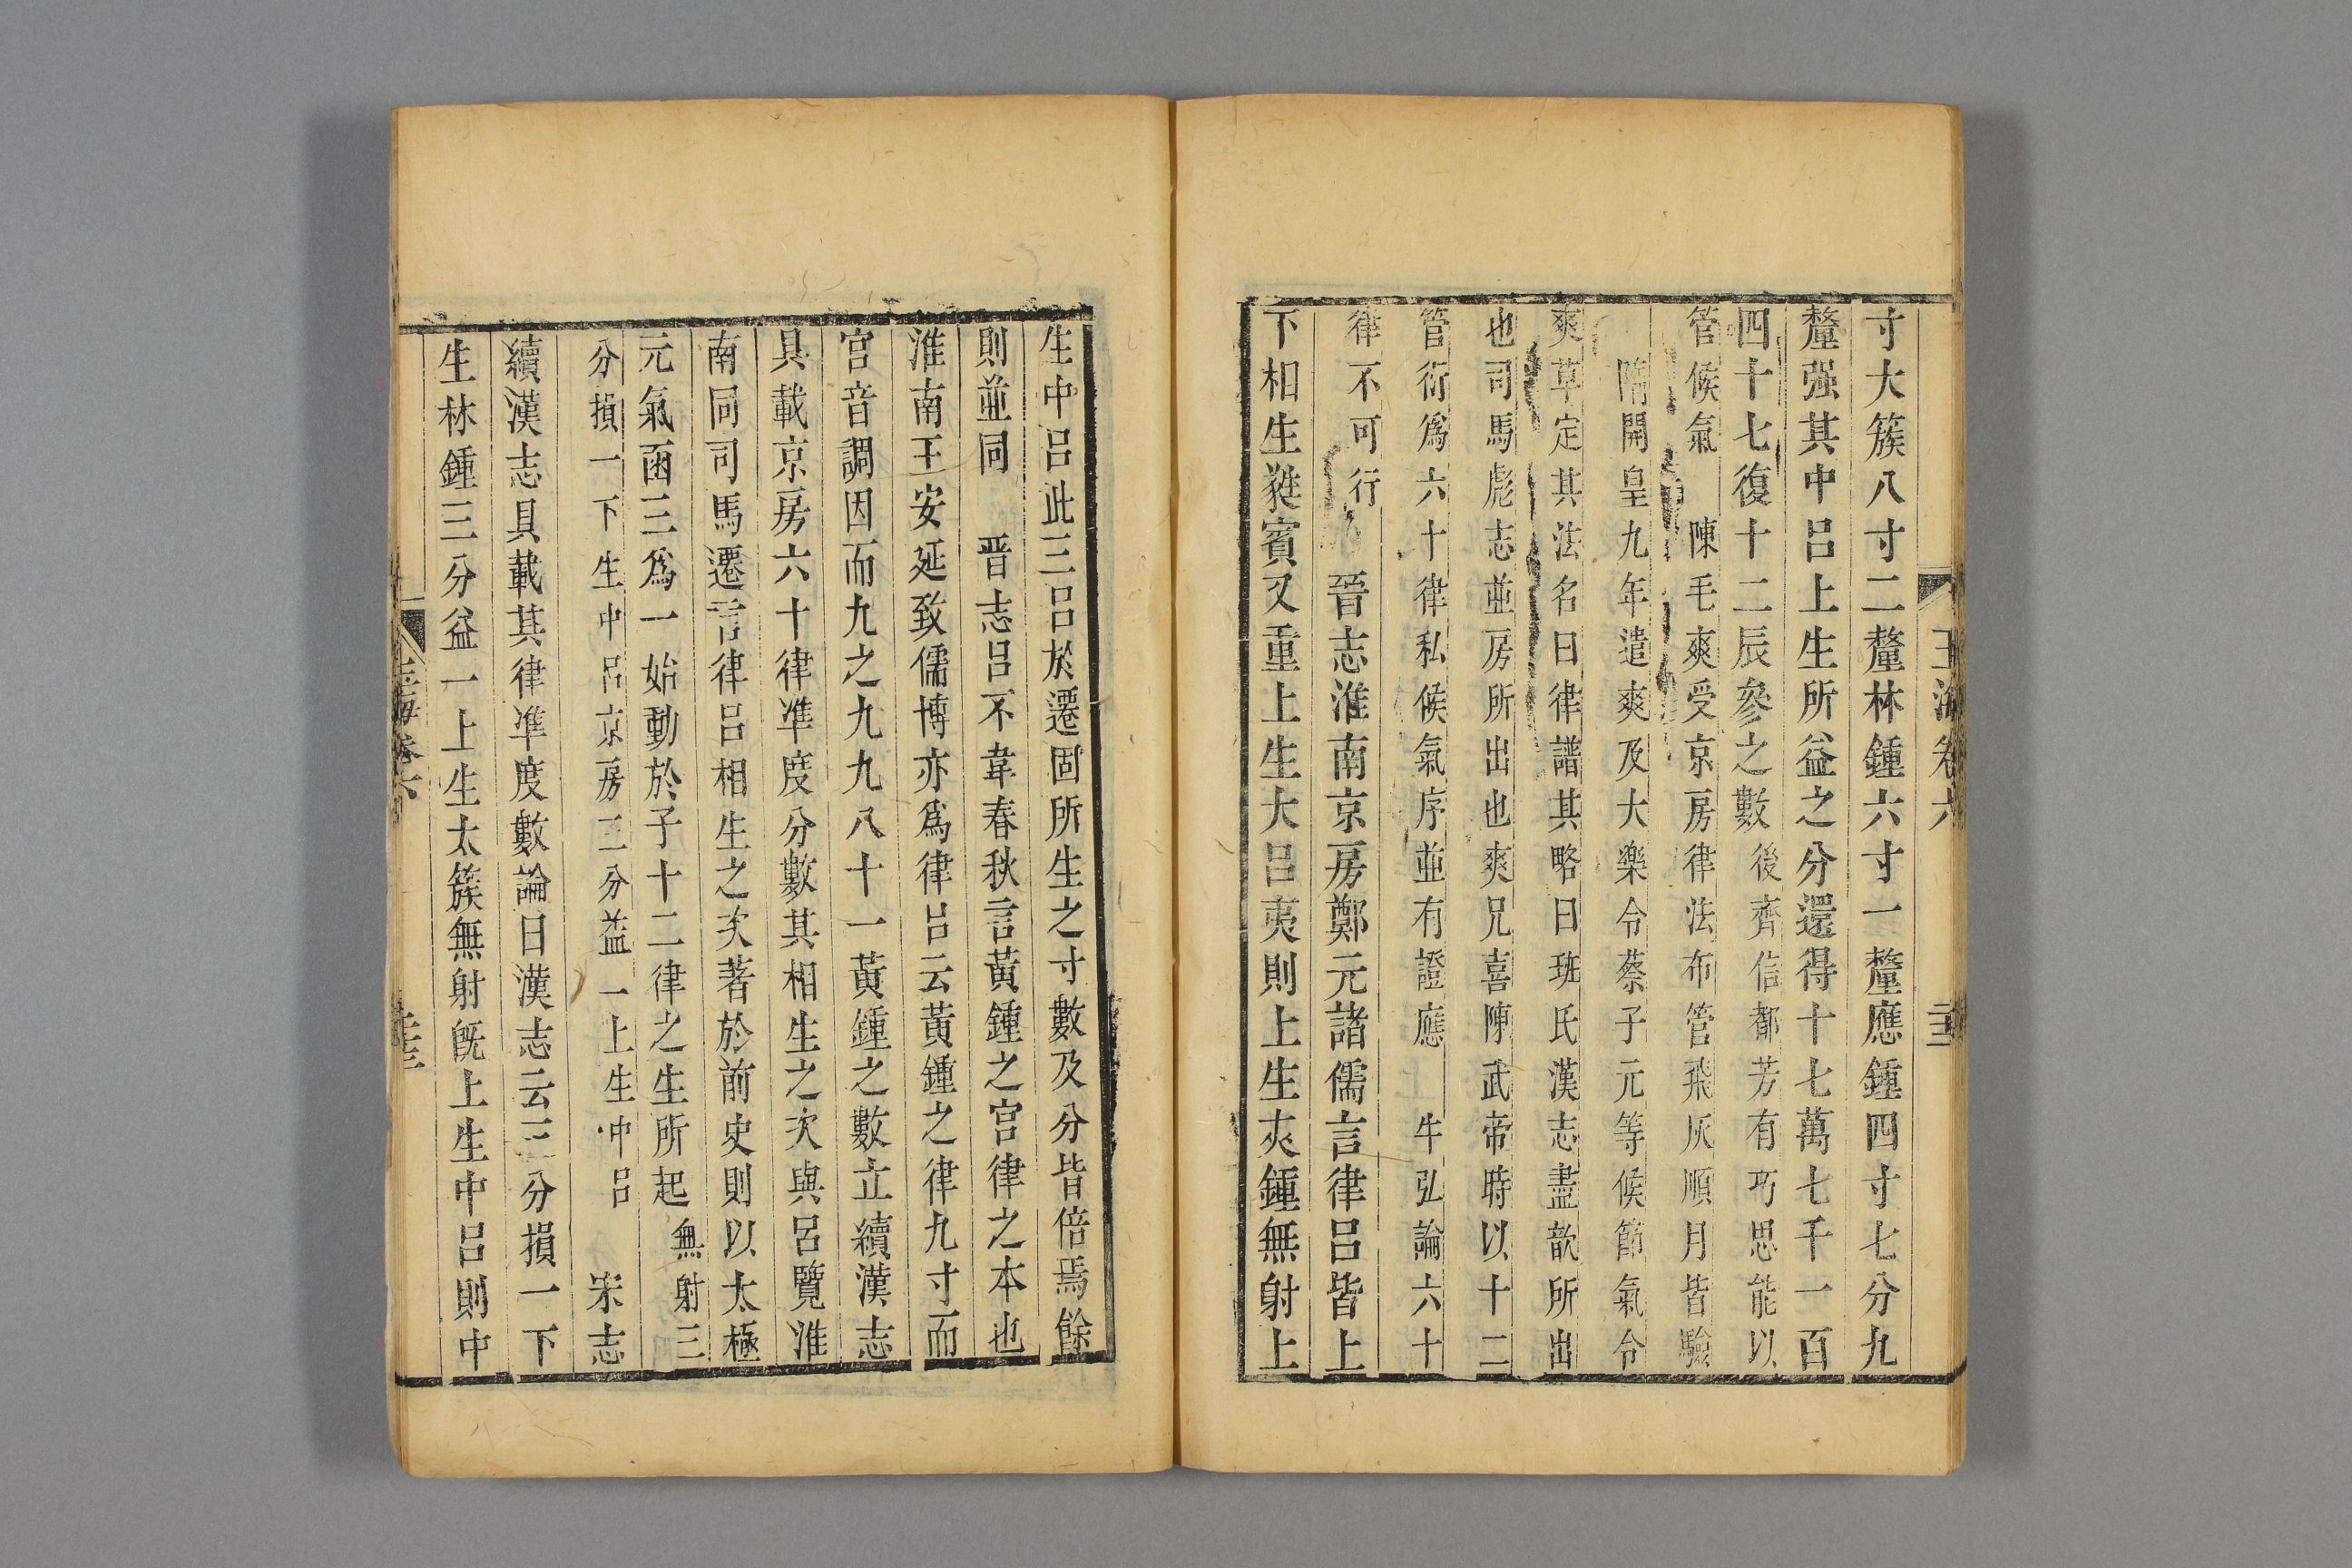 玉海卷六
寸大簇八寸二釐林鍾六寸一釐應鍾四寸七分九
釐强其中呂上生所益之分還得十七萬七千一百
四十七復十二辰參之數後齊信都芳有巧思能以
管候氣 陳毛爽受京房律法布管飛灰順月皆驗
隋開皇九年遣爽及大樂令蔡子元等候節氣令
爽草定其法名曰律譜其略曰班氏漢志盡歆所出
也司馬彪志並房所出也爽兄喜陳武帝時以十二
管衍爲六十律私候氣序並有證應 牛弘論六十
律不可行 晉志淮南京房鄭元諸儒言律呂皆上
下相生蕤賓又重上生大呂夷則上生夾鍾無射上
生中呂此三呂於遷固所生之寸數及分皆倍焉餘
則並同 晋志呂不韋春秋言黃鍾之宮律之本也
淮南王安延致儒博亦爲律呂云黃鍾之律九寸而
宮音調因而九之九九八十一黃鍾之數立續漢志
具載京房六十律準度分數其相生之次與呂覽淮
南同司馬遷言律呂相生之次著於前史則以太極
元氣函三爲一始動於子十二律之生所起無射三
分損一下生中呂京房三分益一上生中呂 宋志
續漢志具載其律準度數論曰漢志云三分損一下
生林鍾三分益一上生太簇無射旣上生中呂則中
玉海卷六